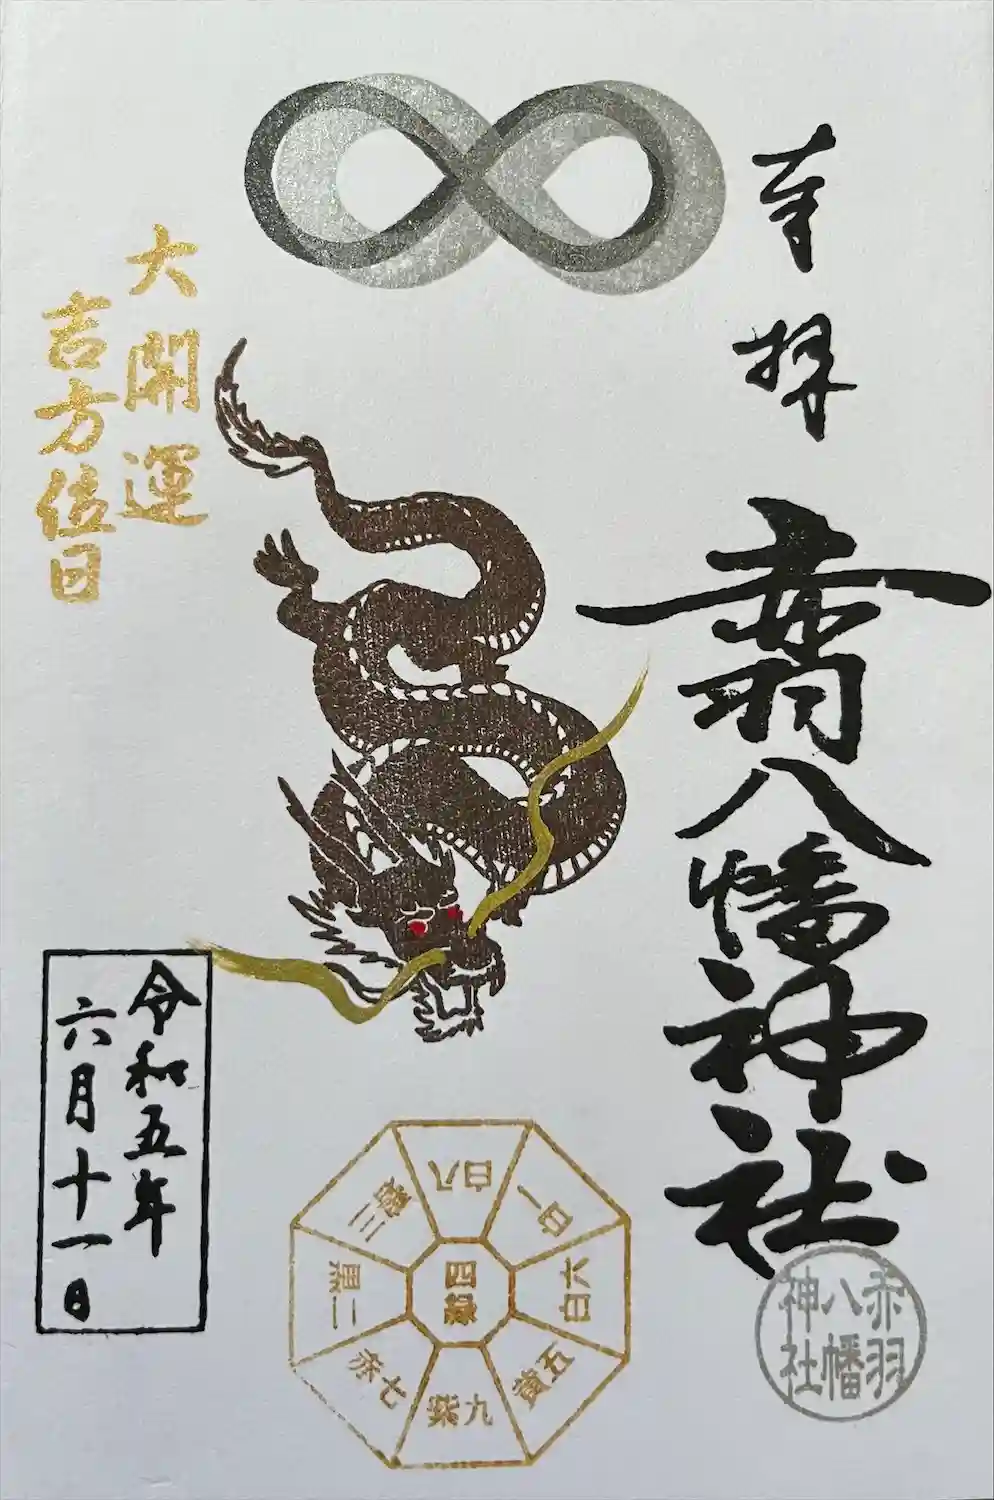 奉拝
赤羽八幡神社
赤羽
八幡
神社
大開運
吉方位日
令和五年
六月十一日
八白
一白
六白
五黄
九紫
七赤
二黒
三碧
四緑